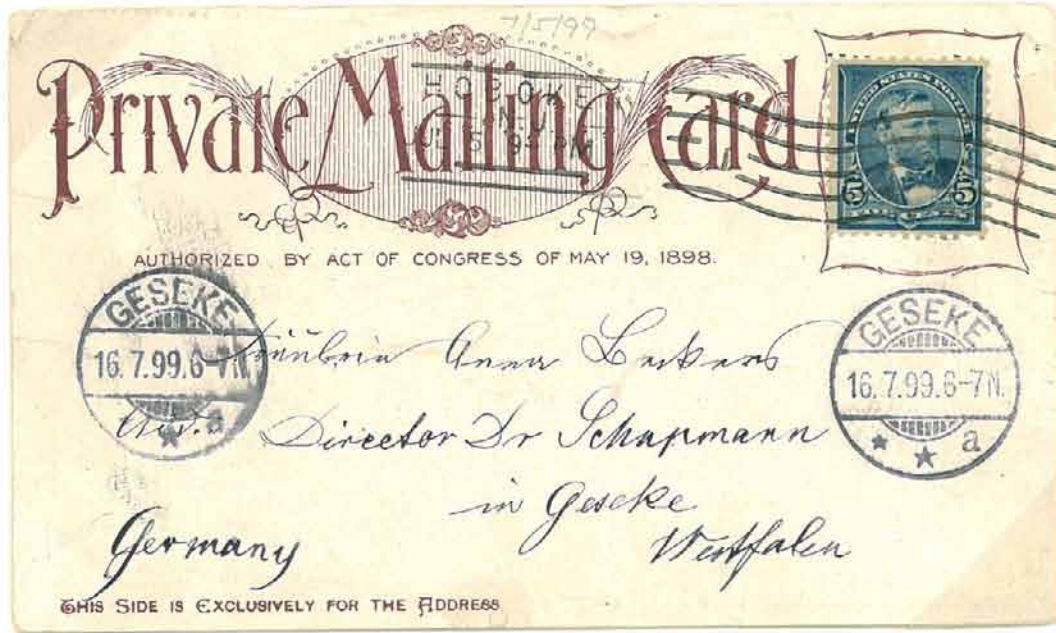 7/5/99
Private Mailing Card
HOBOKEN
PM
UNITED STATES
5 5
AUTHORIZED BY ACT OF CONGRESS OF MAY 19, 1898.
GESEKE
16.7.99.6-7N.
a
GESEKE
16.7.99.6-7N.
a
Fräulein Anna Beckers
Director Dr Schupmann
in Geseke
Westfalen
Germany
THIS SIDE IS EXCLUSIVELY FOR THE ADDRESS